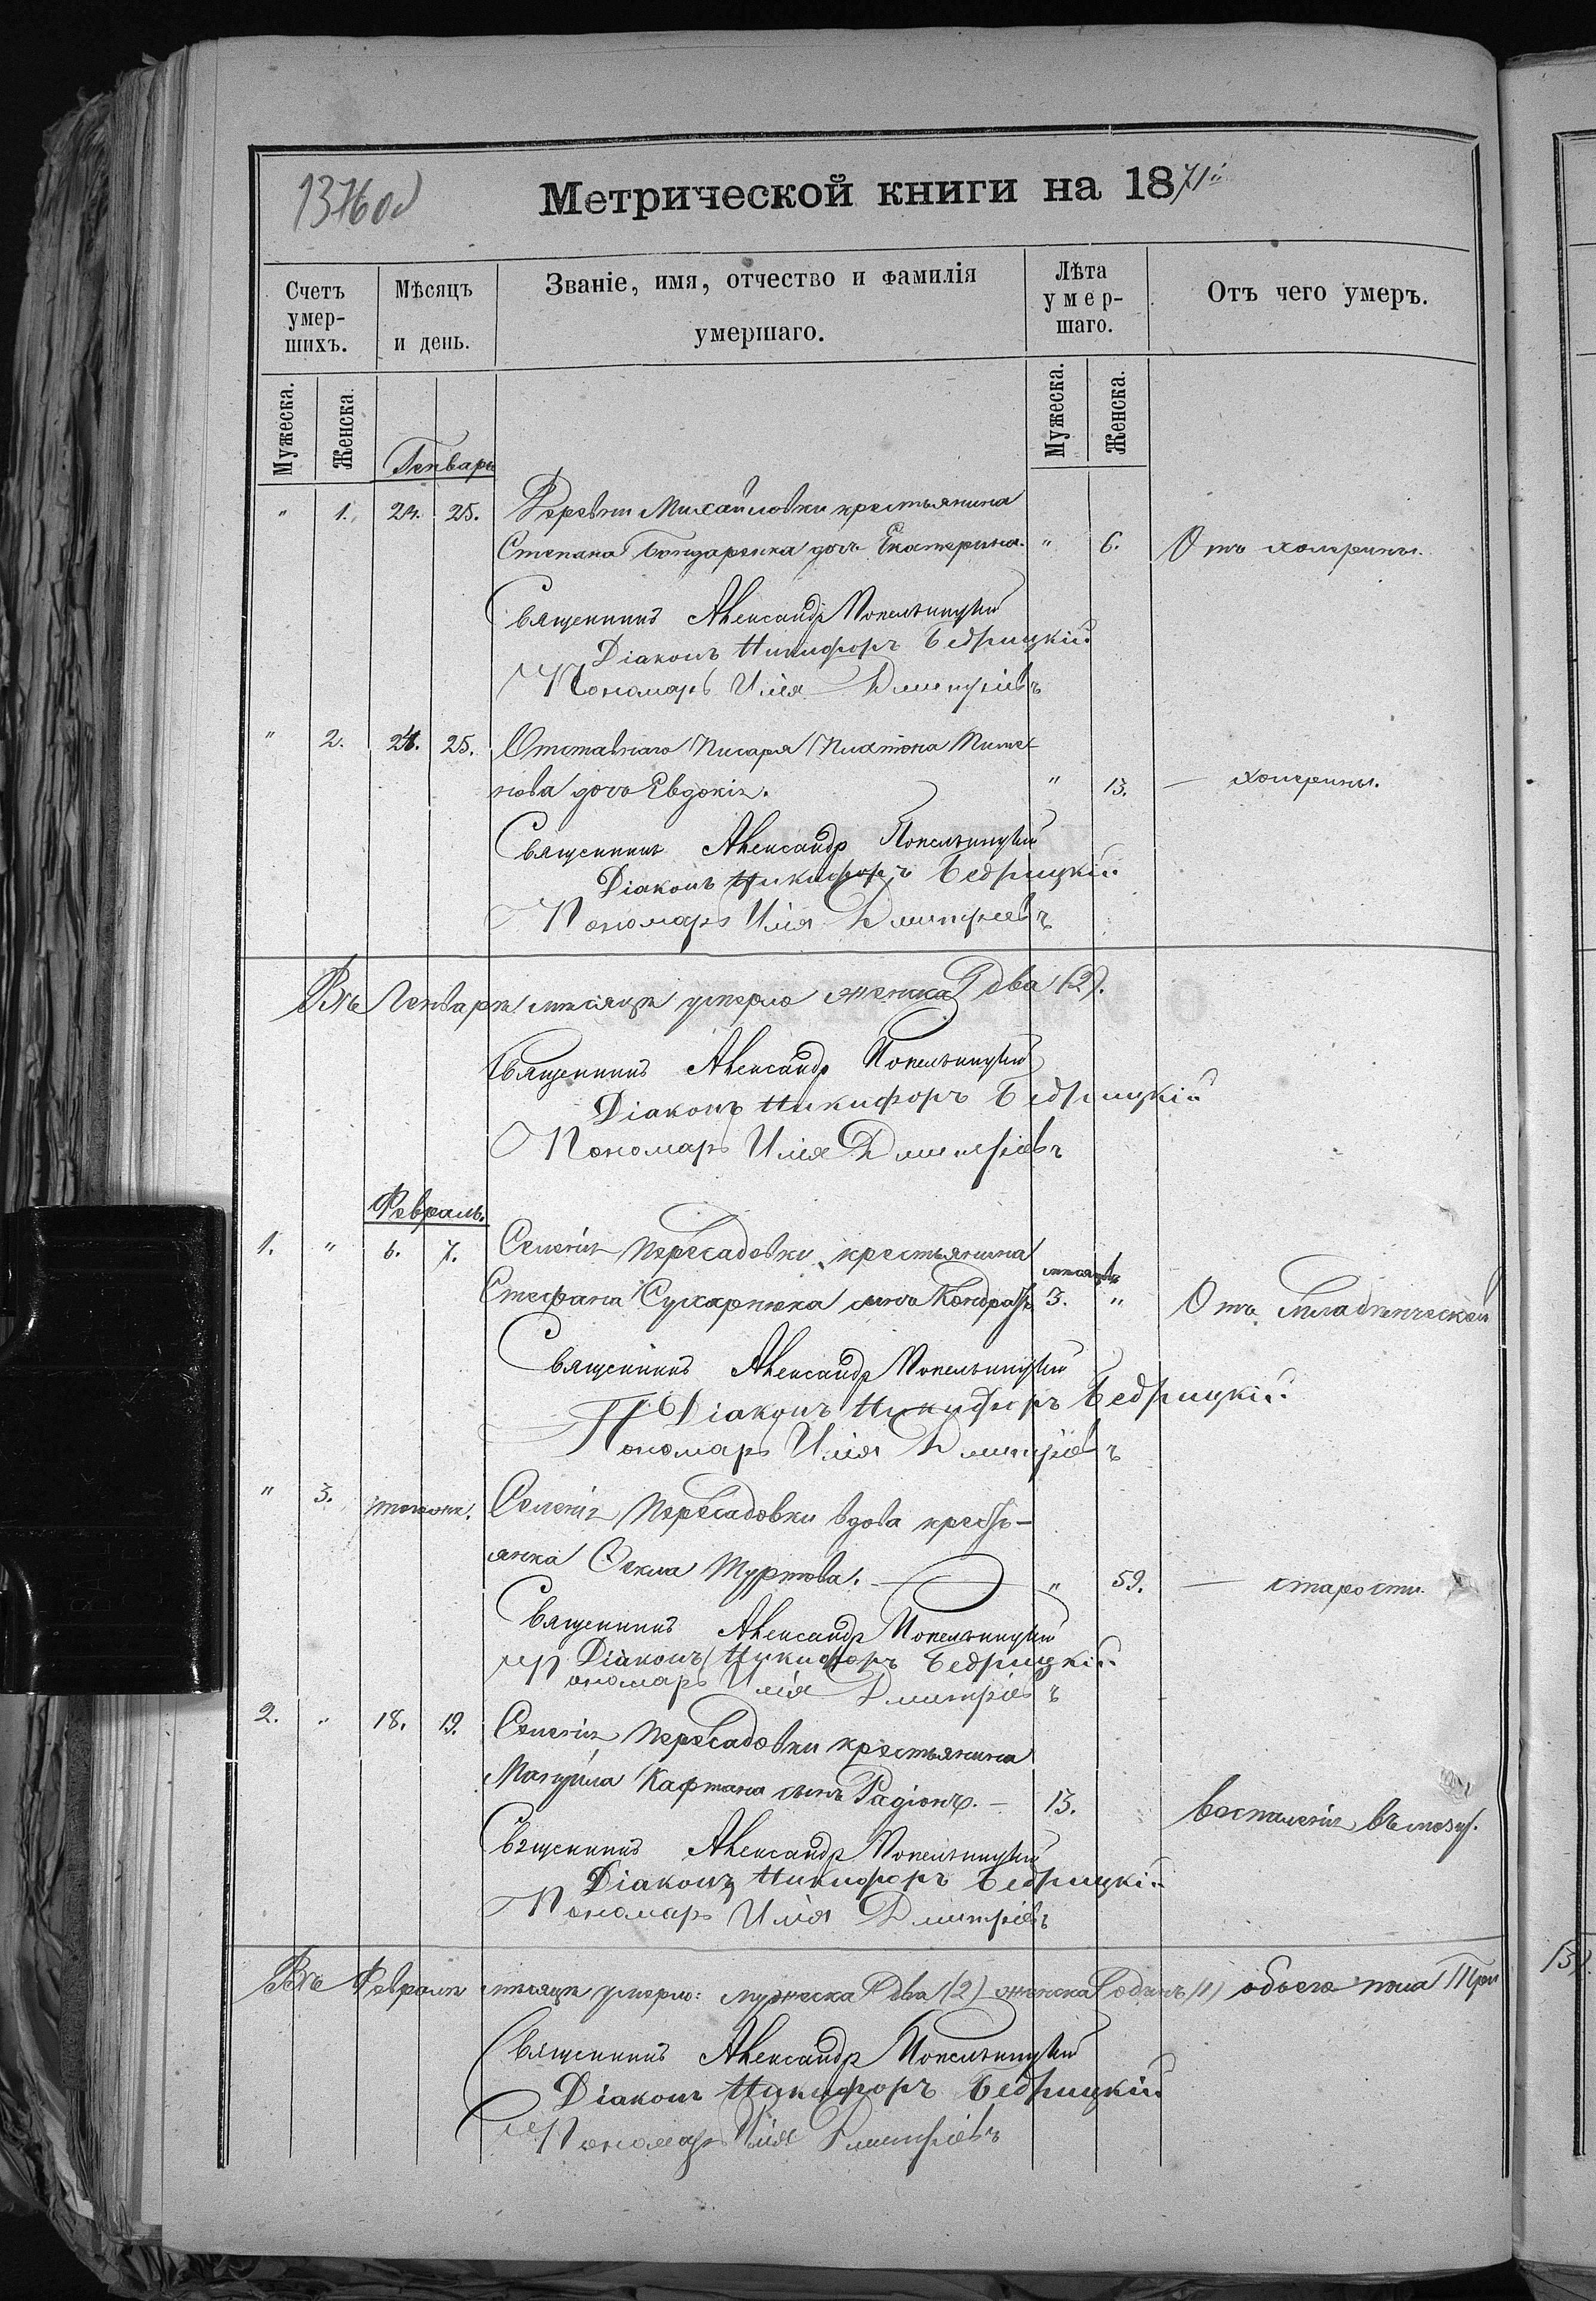 1376об
Метрической книги на 1871й
Счетъ умер-шихъ.
Мѣсяцъ и день.
Званіе, имя, отчество и фамилія умершаго.
Лѣта умер-шаго.
Отъ чего умеръ.
Мужеска.
Женска.
Мужеска.
Женска.
Генварь
" 1. 24. 25. Деревни Михайловки крестьянина
Степана Бондаренка дочь Екатерина. " 6. Отъ холерины.
Священникъ Александръ Попельницкій
Діаконъ Никифоръ Бедрицкій
Пономарь Илія Дмитріевъ
" 2. 24. 25. Отставнаго Писаря Платона
нова дочь Евдокія. " 13. — холерины.
Священникъ Александръ Попельницкій
Діаконъ Никифоръ Бедрицкій
Пономарь Илія Дмитріевъ
Въ Генварѣ мѣсяцѣ умерло женска два (2).
Священникъ Александръ Попельницкій
Діаконъ Никифоръ Бедрицкій
Пономарь Илія Дмитріевъ
Февраль.
1. " 6. 7. Селенія Пересадовки крестьянина
мѣсяцевъ
Стефана Сухарнюка сынъ Кондратъ 3. " Отъ Младенческой
Священникъ Александръ Попельницкій
Діаконъ Никифоръ Бедрицкій
Пономарь Илія Дмитріевъ
" 3. Селенія Пересадовки вдова кресть-
янка Ѳекла " 59. — старости.
Священникъ Александръ Попельницкій
Діаконъ Никифоръ Бедрицкій
Пономарь Илія Дмитріевъ
2. " 18. 19. Селенія Пересадовки крестьянина
Мануила Кафтана сынъ Радіонъ. — 13. воспаленія въ мозгу.
Священникъ Александръ Попельницкій
Діаконъ Никифоръ Бедрицкій
Пономарь Илія Дмитріевъ
Въ Февралѣ мѣсяцѣ умерло: мужеска два (2) женска одинъ (1) обоего пола Три
(3).
Священникъ Александръ Попельницкій
Діаконъ Никифоръ Бедрицкій
Пономарь Илія Дмитріевъ